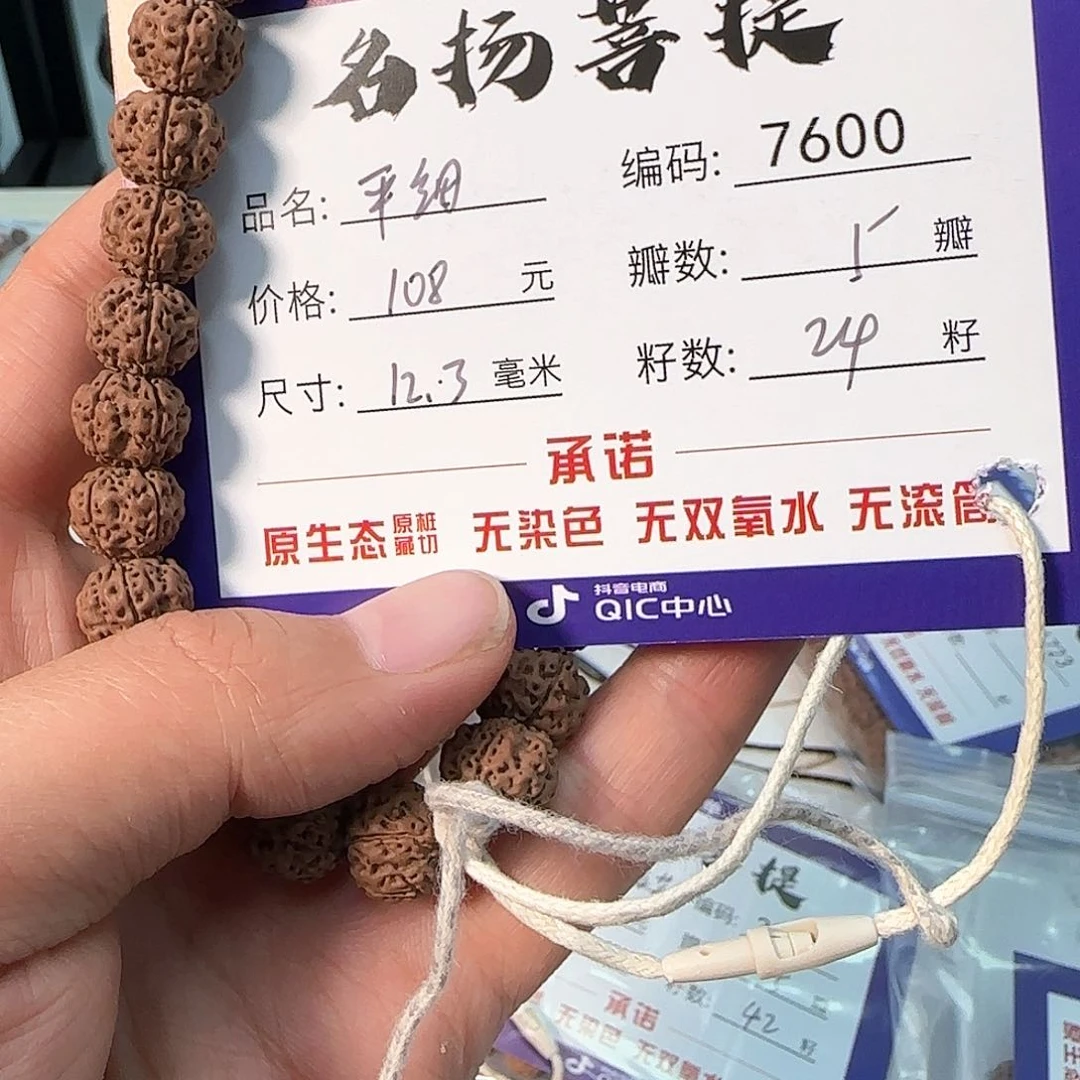 名扬菩提
品名: 平细
编码: 7600
价格: 108 元
瓣数: 5 瓣
尺寸: 12.3 毫米
籽数: 24 籽
承诺
原生态 原桩藏切 无染色 无双氧水 无滚筒
抖音电商
QIC中心
提
编码:
籽数: 42 籽
承诺
无染色 无双氧水